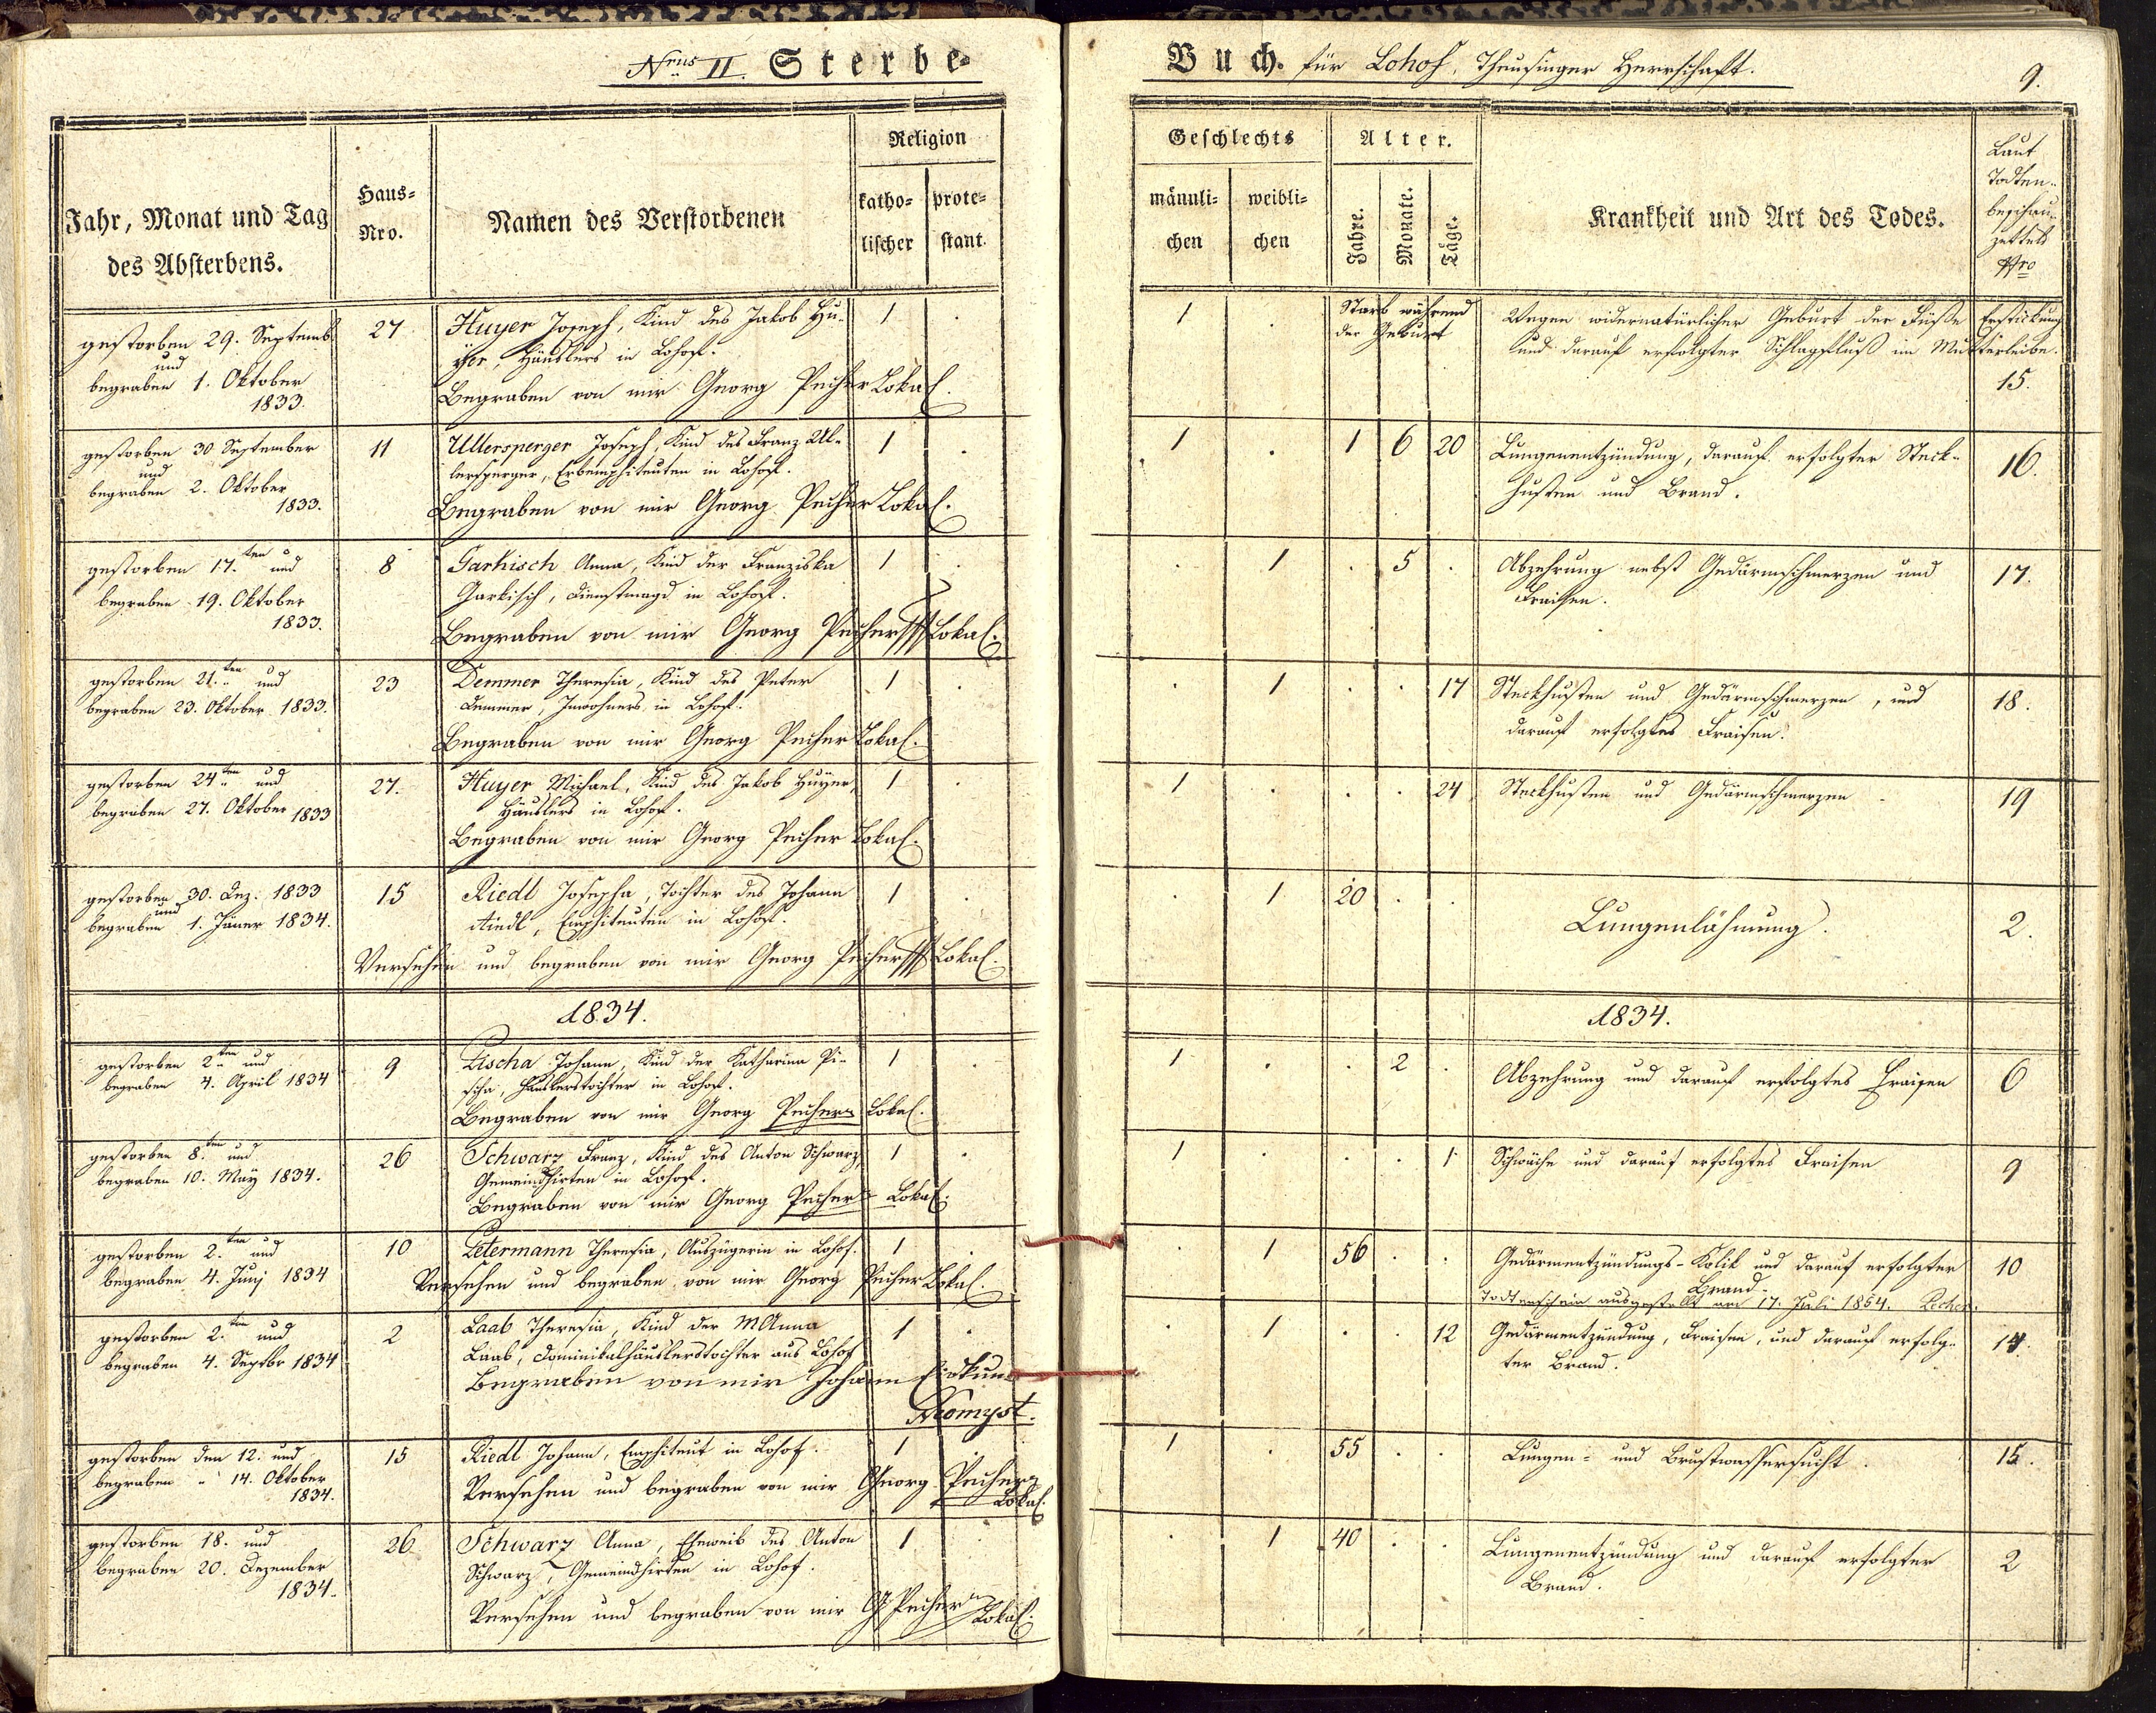 Nrus II. Sterbe=
Jahr, Monat und Tag
des Absterbens.
Haus=
Nro.
Namen des Verstorbenen
Religion
katho=
lischer
prote=
stant.
gestorben 29. Septemb
und
begraben 1. Oktober
1833.
27
Huyer Joseph, Kind des Jakob Hu=
yer, Häuslers in Lohof.
Begraben von mir Georg Pecher Lokal.
1 .
gestorben 30 September
und
begraben 2. Oktober
1833.
11
Ullersperger Joseph, Kind des Franz Ul=
lersperger, Erbemphiteuten in Lohof.
Begraben von mir Georg Pecher Lokal.
1 .
gestorben 17.ten und
begraben 19. Oktober
1833.
8
Garkisch Anna, Kind der Franziska
Garkisch, Dienstmagd in Lohof.
Begraben von mir Georg Pecher Lokal.
1 .
gestorben 21.ten und
begraben 23. Oktober 1833.
23
Demmer Theresia, Kind des Peter
Demmer, Inwohners in Lohof.
Begraben von mir Georg Pecher Lokal.
1 .
gestorben 24ten und
begraben 27. Oktober 1833
27.
Huyer Michael, Kind des Jakob Huyer,
Häuslers in Lohof.
Begraben von mir Georg Pecher Lokal.
1 .
gestorben 30. Dez. 1833
und
begraben 1. Jäner 1834.
15
Riedl Josepha, Tochter des Johann
Riedl, Emphiteuten in Lohof.
Versehen und begraben von mir Georg Pecher Lokal.
1 .
1834.
gestorben 2ten und
begraben 4. April 1834
9
Pischa Johann, Kind der Katharina Pi=
scha, Häuslerstochter in Lohof.
Begraben von mir Georg Pecher Lokal.
1 .
gestorben 8.ten und
begraben 10. May 1834.
26
Schwarz Franz, Kind des Anton Schwarz,
Gemeindhirten in Lohof.
Begraben von mir Georg Pecher Lokal.
1 .
gestorben 2.ten und
begraben 4. Junj 1834
10
Petermann Theresia, Auszügerin in Lohof.
Versehen und begraben von mir Georg Pecher Lokal.
1 .
gestorben 2.ten und
begraben 4. Septbr 1834
2
Laab Theresia, Kind der MAnna
Laab, Dominikalhäuslerstochter aus Lohof
Begraben von mir Johann
1 .
gestorben den 12. und
begraben " 14. Oktober
1834.
15
Riedl Johann, Emphiteut in Lohof.
Versehen und begraben von mir Georg Pecher
Lokal.
1 .
gestorben 18. und
begraben 20. Dezember
1834.
26
Schwarz Anna, Eheweib des Anton
Schwarz, Gemeindhirten in Lohof.
Versehen und begraben von mir G Pecher
Lokal.
1
Buch. für Lohof, Theusinger Herrschaft.
9.
Geschlechts
männli=
chen
weibli=
chen
Alter.
Jahre.
Monate.
Täge.
Krankheit und Art des Todes.
Laut
Todten=
beschau=
zettels
Nro
1 .
Starb während
der Geburt
Wegen widernatürlicher Geburt der Füsse Erstickung
und darauf erfolgter Schlagfluß im Mutterleibe.
15.
1 . 1 6 20
Lungenentzündung, darauf erfolgter Steck=
husten und Brand.
16.
. 1 . 5 .
Abzehrung nebst Gedärmschmerzen und
Fraisen.
17.
. 1 . . 17
Steckhusten und Gedärmschmerzen, und
darauf erfolgtes Fraisen.
18.
1 . . . 24
Steckhusten und Gedärmschmerzen
19
. 1 20 . .
Lungenlähmung.
2.
1834.
1 . . 2 .
Abzehrung und darauf erfolgtes Fraisen
6
1 . . . 1
Schwäche und darauf erfolgtes Fraisen
9
. 1 56 . .
Gedärmentzündungs-Kolik und darauf erfolgter
Brand.
10
Todtenschein ausgestellt am 17. Juli 1854. Pecher.
. 1 . . 12
Gedärmentzündung, Fraisen, und darauf erfolg=
ter Brand.
14.
1 . 55 . .
Lungen= und Brustwassersucht.
15.
. 1 40 . .
Lungenentzündung und darauf erfolgter
Brand.
2